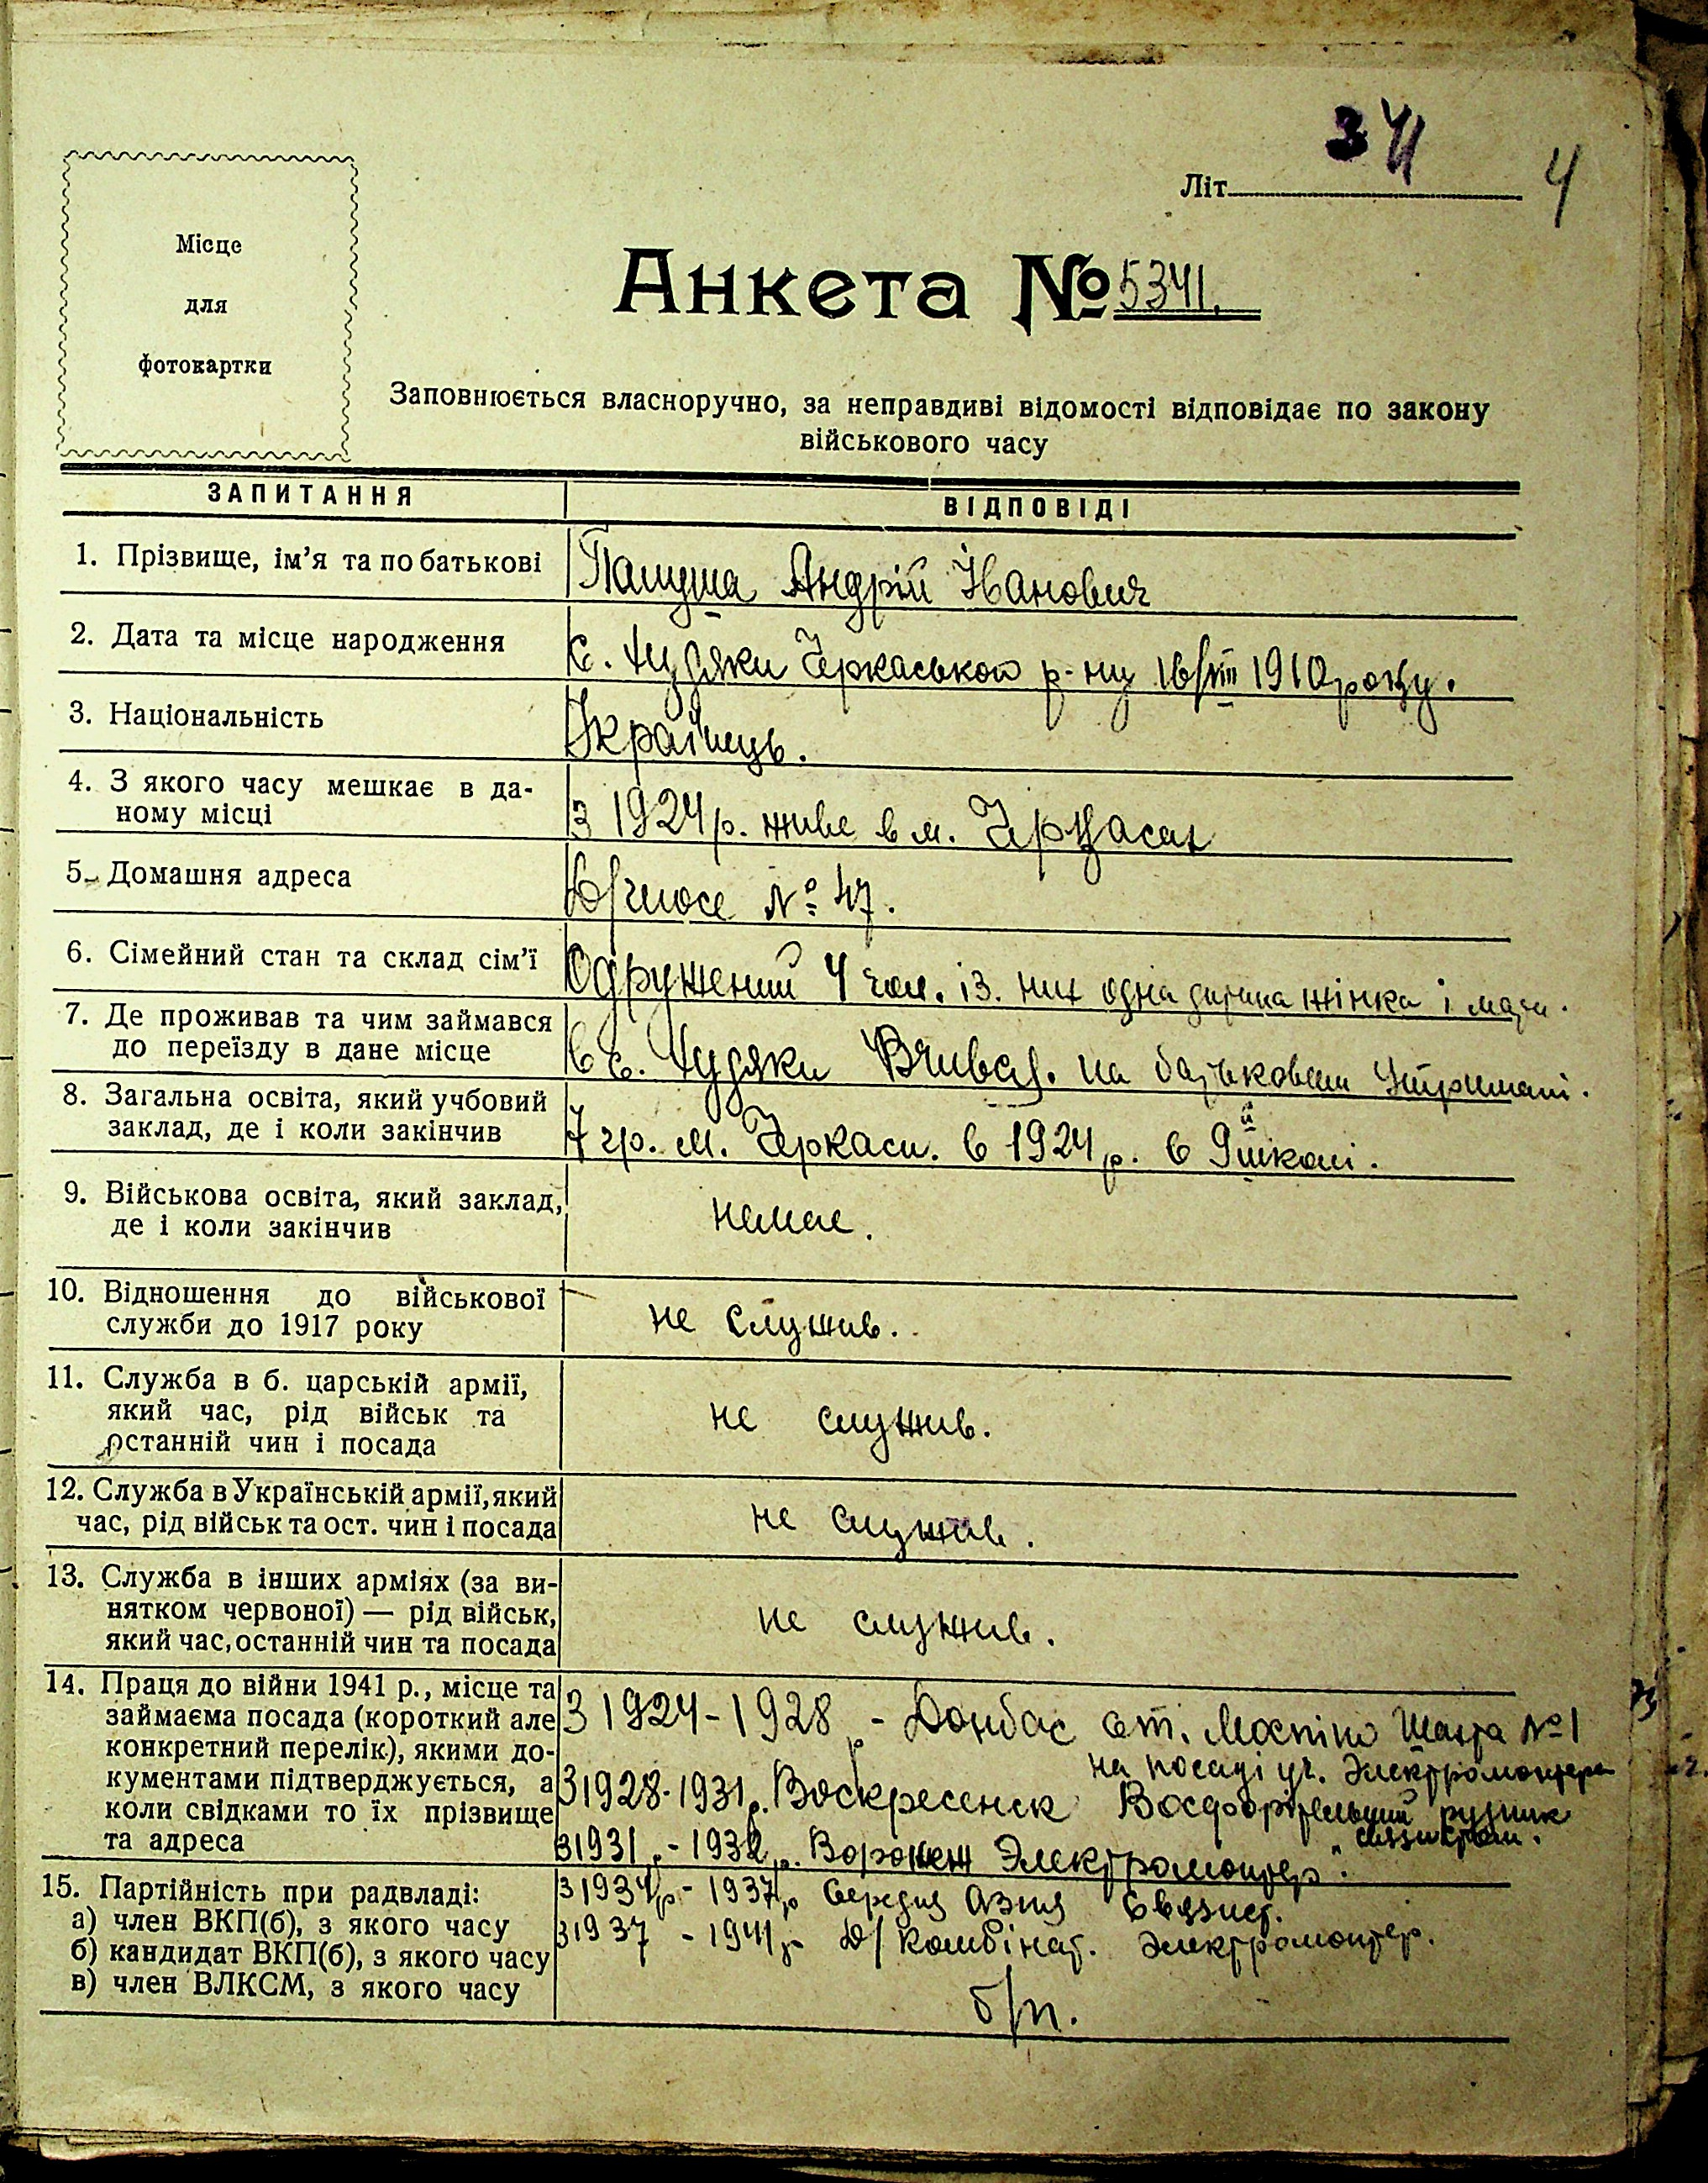 341
4
Літ
Місце
для
фотокартки
Анкета № 5341.
Заповнюється власноручно, за неправдиві відомості відповідає по закону
військового часу
ЗАПИТАННЯ
ВІДПОВІДІ
1. Прізвище, ім'я та по батькові
Андрій Іванович
2. Дата та місце народження
с. Худяки Черкаського р-ну 16/VIII 1910 року.
3. Національність
Українець.
4. З якого часу мешкає в да-
ному місці
З 1924 р. живе в м. Черкасах
5. Домашня адреса
№ 47.
6. Сімейний стан та склад сім'ї
Одружений 4 чол. із. них одна дитина жінка і мати.
7. Де проживав та чим займався
до переїзду в дане місце
в с. Худяки Вчився. на батьковим утримані.
8. Загальна освіта, який учбовий
заклад, де і коли закінчив
7 гр. м. Черкаси. в 1924 р. в 9й школі.
9. Військова освіта, який заклад,
де і коли закінчив
немає.
10. Відношення до військової
служби до 1917 року
не служив.
11. Служба в б. царській армії,
який час, рід військ та
останній чин і посада
не служив.
12. Служба в Українській армії, який
час, рід військ та ост. чин і посада
не служив.
13. Служба в інших арміях (за ви-
нятком червоної) — рід військ,
який час, останній чин та посада
не служив.
14. Праця до війни 1941 р., місце та
займаєма посада (короткий але
конкретний перелік), якими до-
кументами підтверджується, а
коли свідками то їх прізвище
та адреса
З 1924-1928 р - Донбас ст. Моспіно Шахта №1
на посаді уч. Электромонтера
З 1928-1931 р. Воскресенск рудник
З 1931 р. - 1932 р. Воронеж Электромонтер.
15. Партійність при радвладі:
а) член ВКП(б), з якого часу
б) кандидат ВКП(б), з якого часу
в) член ВЛКСМ, з якого часу
З 1934 р - 1937 р Середня Азия Связист.
З 1937 - 1941 р - Д/комбінат. Электромонтер.
б/п.